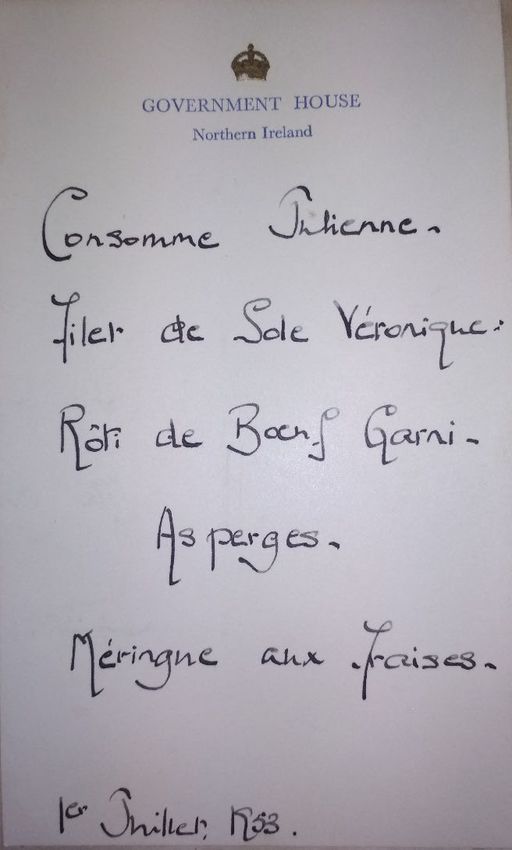 GOVERNMENT HOUSE
Northern Ireland
Consomme Julienne.
Filet de Sole Véronique.
Rôti de Boeuf Garni.
Asperges.
Méringue aux Fraises.
1er Juillet, 1953.